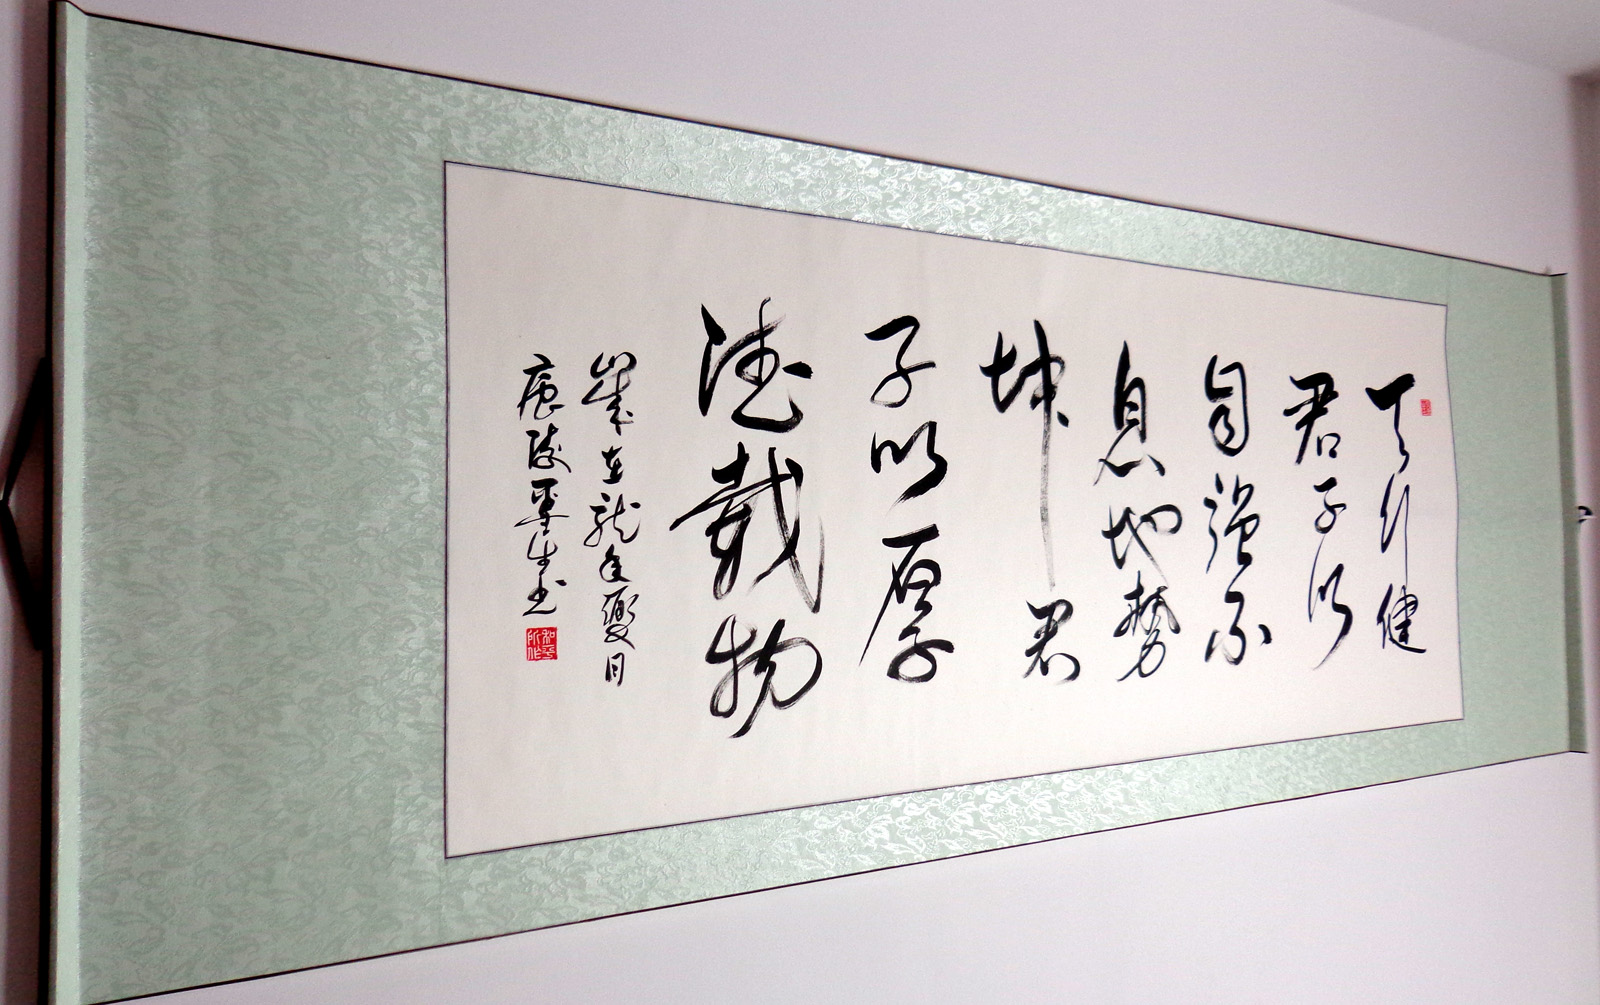 天行健
君子以
自强不
息地势
坤君
子以厚
德载物
岁在龙年夏月
广陵平生书
和平
所作